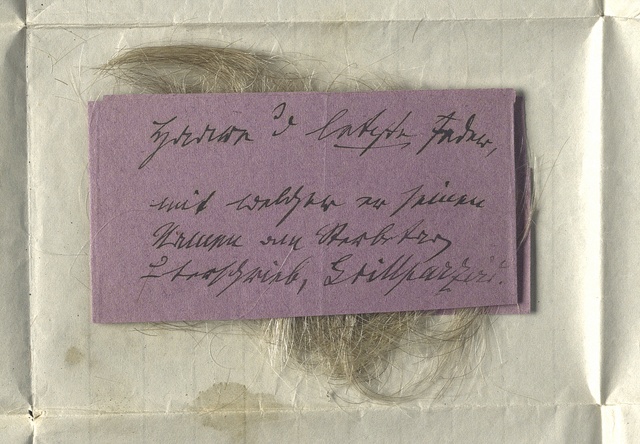 Haare & letzte Feder,
mit welcher er seinen
Namen am Sterbetag
unterschrieb, Grillparzers.